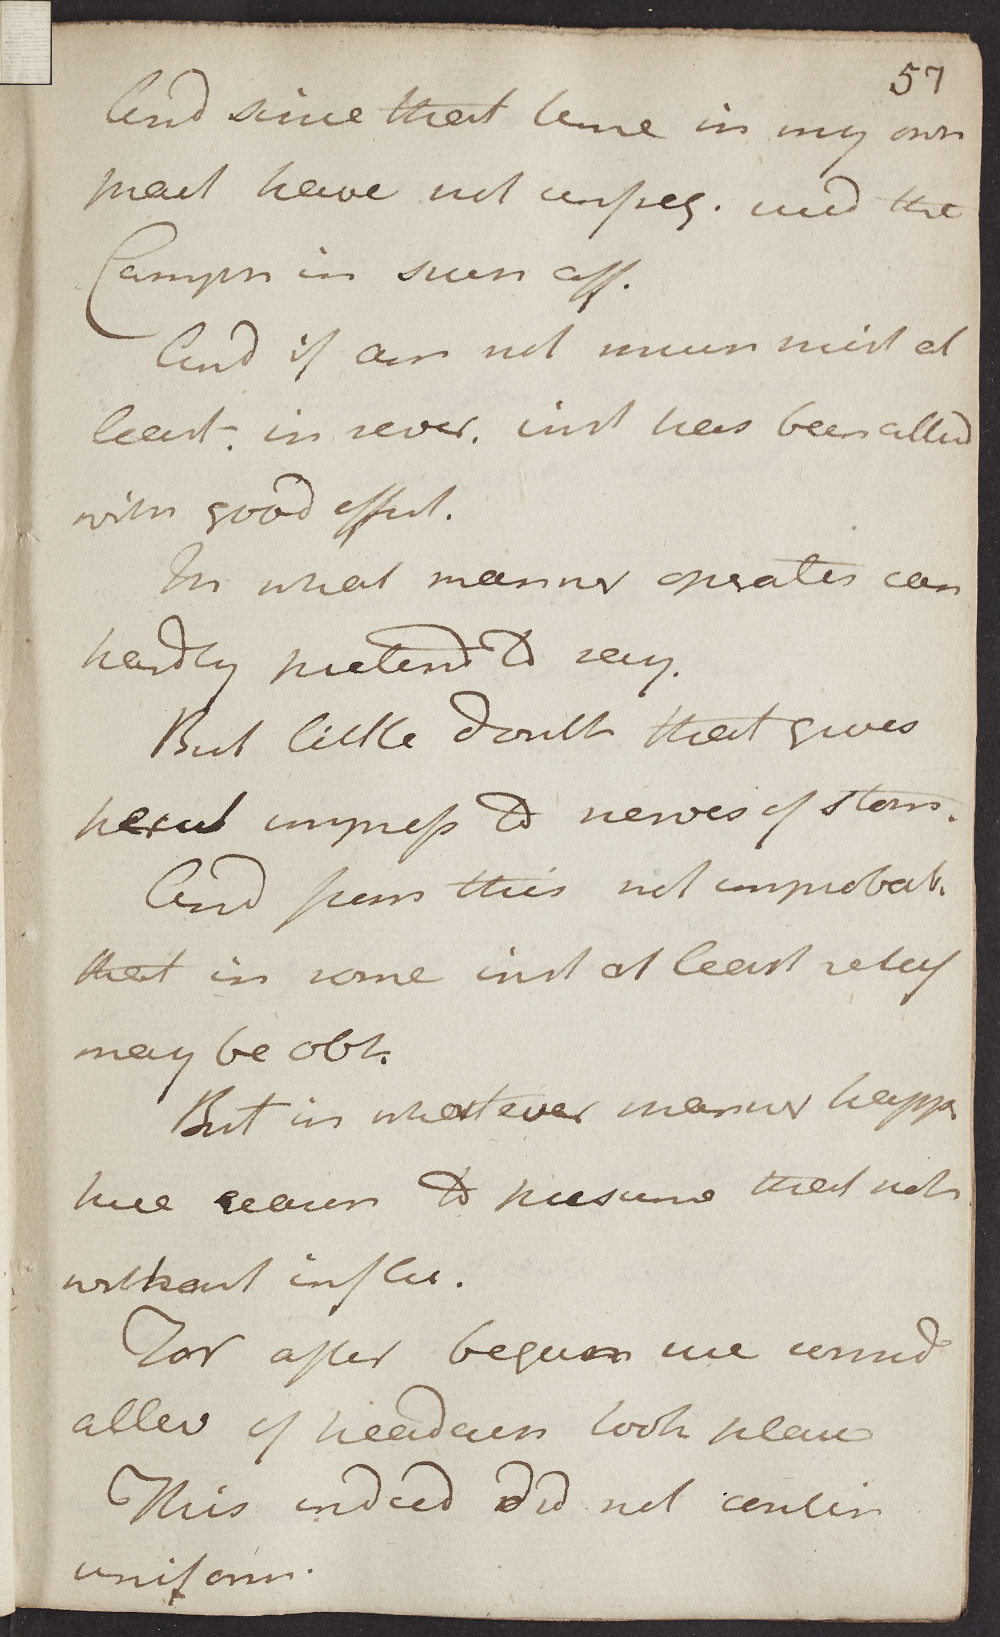 57
And since that time in my own
pract have not unfreq. used the
Camph in such aff.
And if am not much mist at
least in sever. inst has been allied
with good effect.
In what manner operates can
hardly pretend to say.
But little doubt that gives
impress to nerves of stom.
And from this not improbab.
that in some inst at least relief
may be obt.
But in whatever manner happ
have reason to presume that not
without influ.
For after begun use
allev of headach took place
This indeed did not contin
uniform.